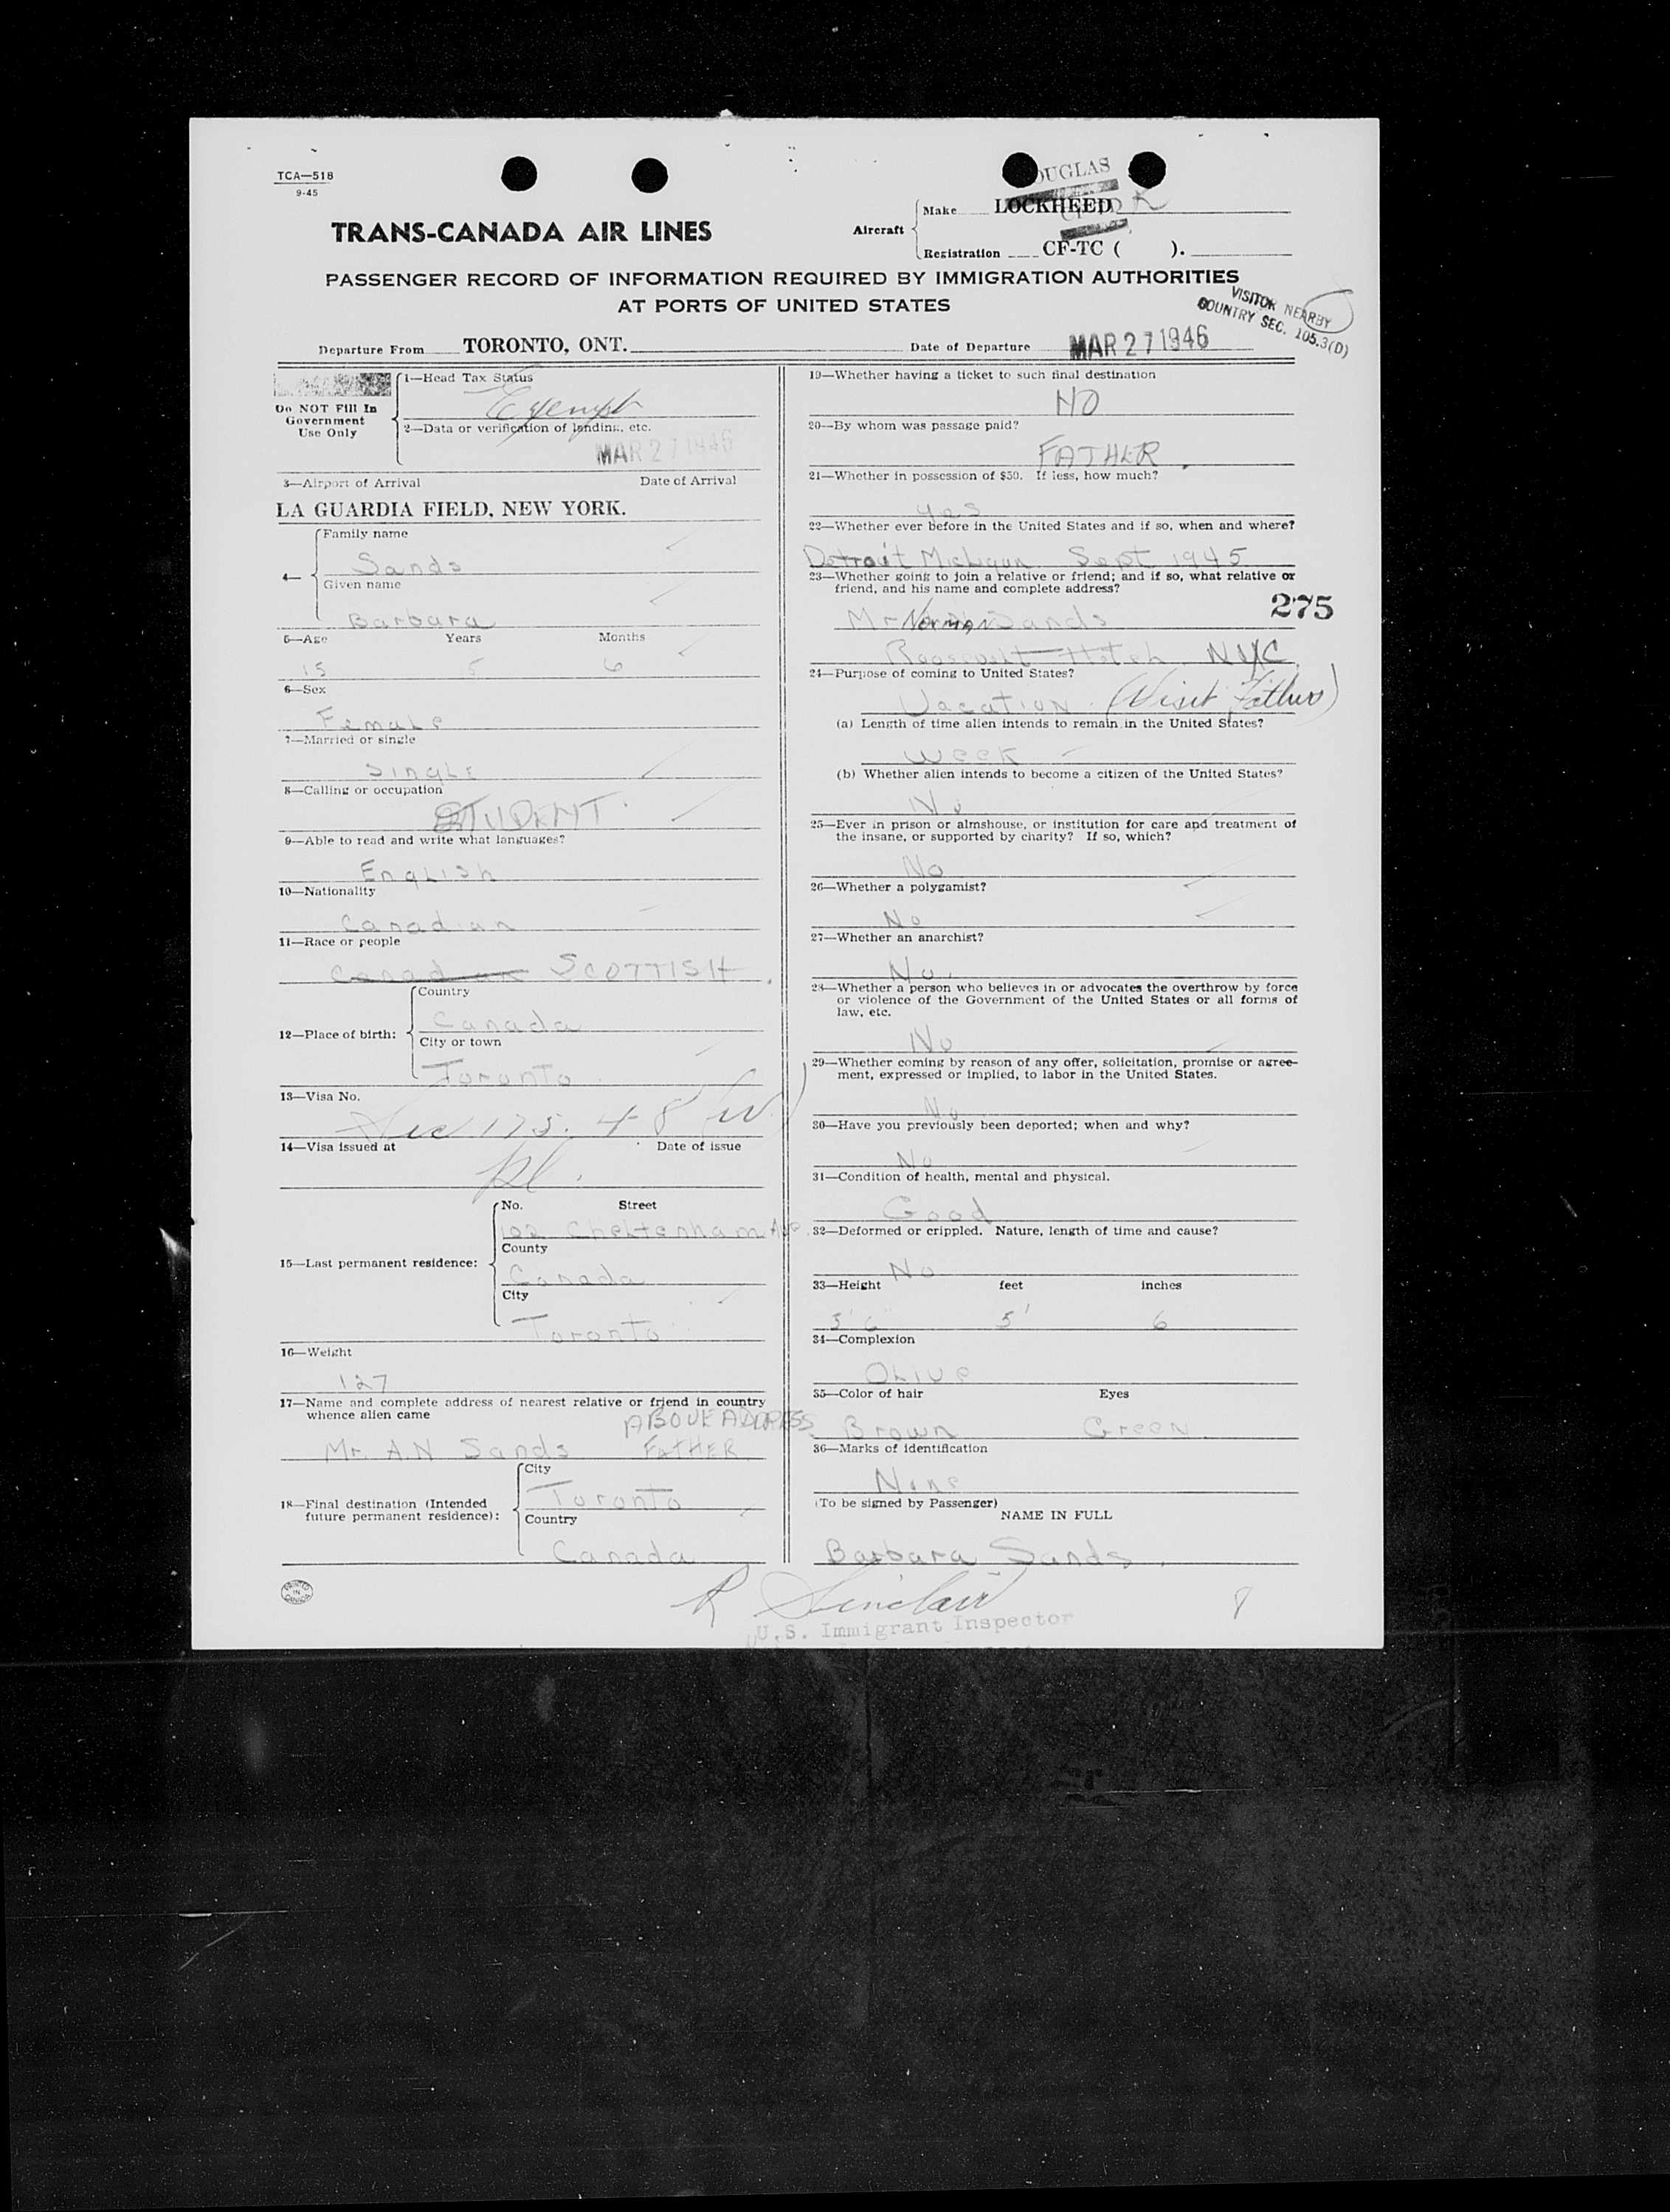 TCA—518
9-45
DOUGLAS
TRANS-CANADA AIR LINES
Aircraft
Make LOCKHEED
Registration CF-TC ( ).
PASSENGER RECORD OF INFORMATION REQUIRED BY IMMIGRATION AUTHORITIES
AT PORTS OF UNITED STATES
VISITOR NEARBY
COUNTRY SEC. 105.3(D)
Departure From TORONTO, ONT.
Date of Departure MAR 27 1946
Do NOT Fill In
Government
Use Only
1—Head Tax Status
Exempt
2—Data or verification of landing, etc.
MAR 27 1946
3—Airport of Arrival Date of Arrival
LA GUARDIA FIELD, NEW YORK.
4—
Family name
Sands
Given name
Barbara
5—Age Years Months
15 5 6
6—Sex
Female
7—Married or single
Single
8—Calling or occupation
STUDENT
9—Able to read and write what languages?
English
10—Nationality
Canadian
11—Race or people
Canadian SCOTTISH
12—Place of birth:
Country
Canada
City or town
Toronto
13—Visa No.
Sec 175.48
14—Visa issued at Date of issue
15—Last permanent residence:
No. Street
102 Cheltenham Ave.
County
Canada
City
Toronto
16—Weight
127
17—Name and complete address of nearest relative or friend in country
whence alien came
ABOVE ADDRESS
Mr. A.N Sands FATHER
18—Final destination (Intended
future permanent residence):
City
Toronto
Country
Canada
PRINTED
IN
CANADA
19—Whether having a ticket to such final destination
NO
20—By whom was passage paid?
FATHER
21—Whether in possession of $50. If less, how much?
yes
22—Whether ever before in the United States and if so, when and where?
Detroit Michigan Sept 1945
23—Whether going to join a relative or friend; and if so, what relative or
friend, and his name and complete address?
275
Mr Norman Sands
Roosevelt Hotel NYC
24—Purpose of coming to United States?
Vacation (Visit Father)
(a) Length of time alien intends to remain in the United States?
week
(b) Whether alien intends to become a citizen of the United States?
No
25—Ever in prison or almshouse, or institution for care and treatment of
the insane, or supported by charity? If so, which?
No
26—Whether a polygamist?
No
27—Whether an anarchist?
No.
28—Whether a person who believes in or advocates the overthrow by force
or violence of the Government of the United States or all forms of
law, etc.
No
29—Whether coming by reason of any offer, solicitation, promise or agree-
ment, expressed or implied, to labor in the United States.
No
30—Have you previously been deported; when and why?
No
31—Condition of health, mental and physical.
Good
32—Deformed or crippled. Nature, length of time and cause?
No
33—Height feet inches
5' 6" 5' 6
34—Complexion
Olive
35—Color of hair Eyes
Brown Green
36—Marks of identification
None
(To be signed by Passenger)
NAME IN FULL
Barbara Sands
R Sinclair
U.S. Immigrant Inspector